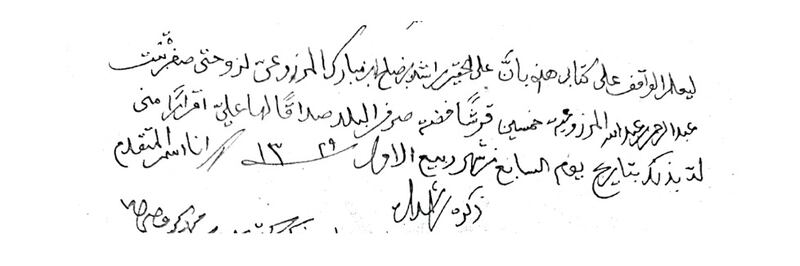 ليعلم الواقف على كتابي هذه بأنّ عليّ الحقير راشد بن صالح بن مبارك المزروعي لزوجتي صفية بنت
عبدالرحمن بن عبدالله المزروعية خمسين قرشًا فضة صرف البلد صداقًا لها عليّ اقرارًا مني
لها بذلك بتاريخ يوم السابع من شهر ربيع الاول ١٣٢٩ انا اسمي المتقدم
ذكره